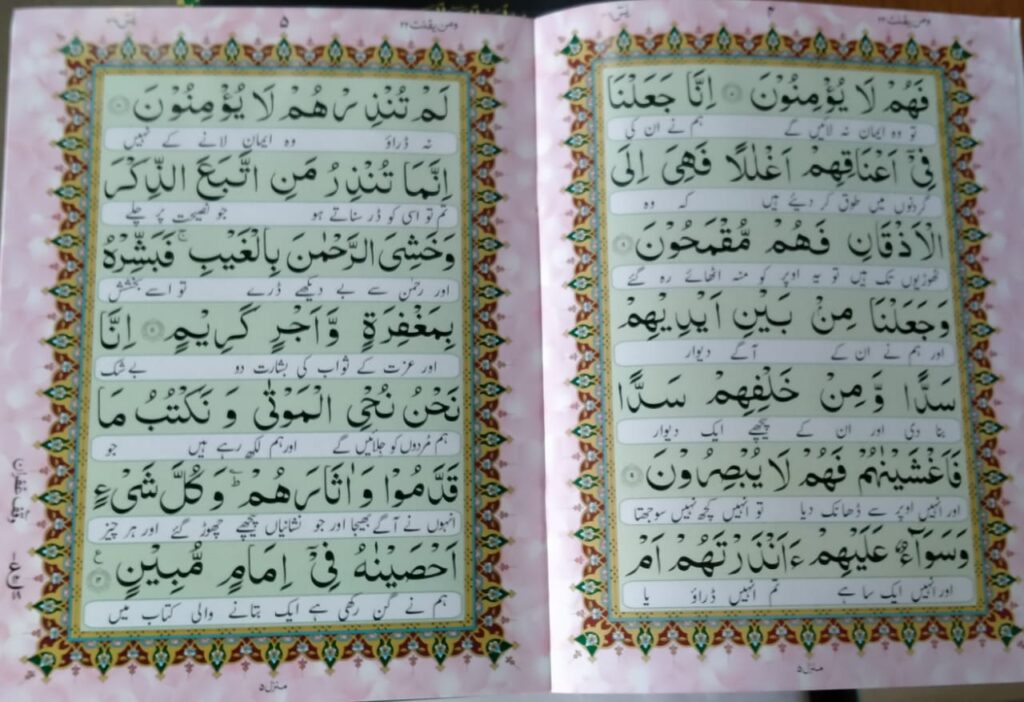 ومن یقنت ٢٢ ۴ یٰسٓ
فَهُمْ لَا يُؤْمِنُوْنَ اِنَّا جَعَلْنَا
تو وہ ایمان نہ لائیں گے ہم نے ان کی
فِيْٓ اَعْنَاقِهِمْ اَغْلٰلًا فَهِيَ اِلَى
گردنوں میں طوق کر دیئے ہیں کہ وہ
الْاَذْقَانِ فَهُمْ مُّقْمَحُوْنَ
ٹھوڑیوں تک ہیں تو یہ اوپر کو منہ اٹھائے رہ گئے
وَجَعَلْنَا مِنْۢ بَيْنِ اَيْدِيْهِمْ
اور ہم نے ان کے آگے دیوار
سَدًّا وَّ مِنْ خَلْفِهِمْ سَدًّا
بنا دی اور ان کے پیچھے ایک دیوار
فَاَغْشَيْنٰهُمْ فَهُمْ لَا يُبْصِرُوْنَ
اور انہیں اوپر سے ڈھانک دیا تو انہیں کچھ نہیں سوجھتا
وَسَوَآءٌ عَلَيْهِمْ ءَاَنْذَرْتَهُمْ اَمْ
اور انہیں ایک سا ہے تم انہیں ڈراؤ یا
منزل ۵
ومن یقنت ٢٢ ۵ یٰسٓ
لَمْ تُنْذِرْهُمْ لَا يُؤْمِنُوْنَ
نہ ڈراؤ وہ ایمان لانے کے نہیں
اِنَّمَا تُنْذِرُ مَنِ اتَّبَعَ الذِّكْرَ
تم تو اسی کو ڈر سناتے ہو جو نصیحت پر چلے
وَخَشِيَ الرَّحْمٰنَ بِالْغَيْبِ ۚ فَبَشِّرْهُ
اور رحمٰن سے بے دیکھے ڈرے تو اسے بخشش
بِمَغْفِرَةٍ وَّاَجْرٍ كَرِيْمٍ اِنَّا
اور عزت کے ثواب کی بشارت دو بے شک
نَحْنُ نُحْيِ الْمَوْتٰى وَ نَكْتُبُ مَا
ہم مُردوں کو جلائیں گے اور ہم لکھ رہے ہیں جو
قَدَّمُوْا وَ اٰثَارَهُمْ ؕ وَ كُلَّ شَيْءٍ
انہوں نے آگے بھیجا اور جو نشانیاں پیچھے چھوڑ گئے اور ہر چیز
اَحْصَيْنٰهُ فِيْٓ اِمَامٍ مُّبِيْنٍ
ہم نے گن رکھی ہے ایک بتانے والی کتاب میں
منزل ۵
وقف غفران